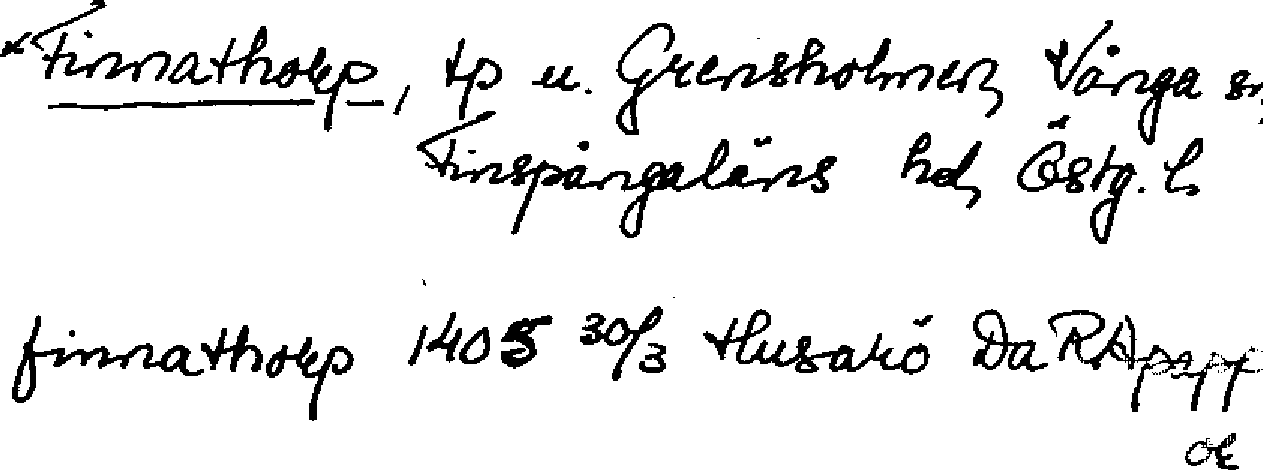 *Finnathorp, tp u. Grensholmen, Vånga sn,
Finspångaläns hd, Östg. l.
finnathorp 1405 30/3 Husarö Da RApapp
OE